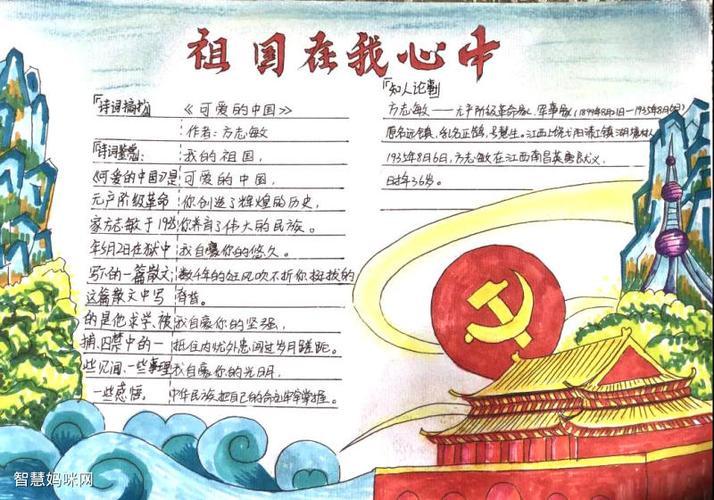 祖国在我心中
诗词摘抄
《可爱的中国》
作者：方志敏
我的祖国，
可爱的中国，
你创造了辉煌的历史，
你养育了伟大的民族。
我自豪你的悠久，
数千年的狂风吹不折你挺拔的
脊背。
我自豪你的坚强，
抵住内忧外患闯过岁月蹉跎。
我自豪你的光明，
中华民族把自己的命运牢牢掌握。
诗词鉴赏：
《可爱的中国》是
无产阶级革命
家方志敏于1935
年5月2日在狱中
写的一篇散文
这篇散文中写
的是他求学、被
捕、囚禁中的一
些见闻、一些事理
一些感悟。
知人论事
方志敏——无产阶级革命家、军事家（1899年8月21日—1935年8月6日）
1935年8月6日，方志敏在江西南昌英勇就义，
时年36岁。
智慧妈咪网